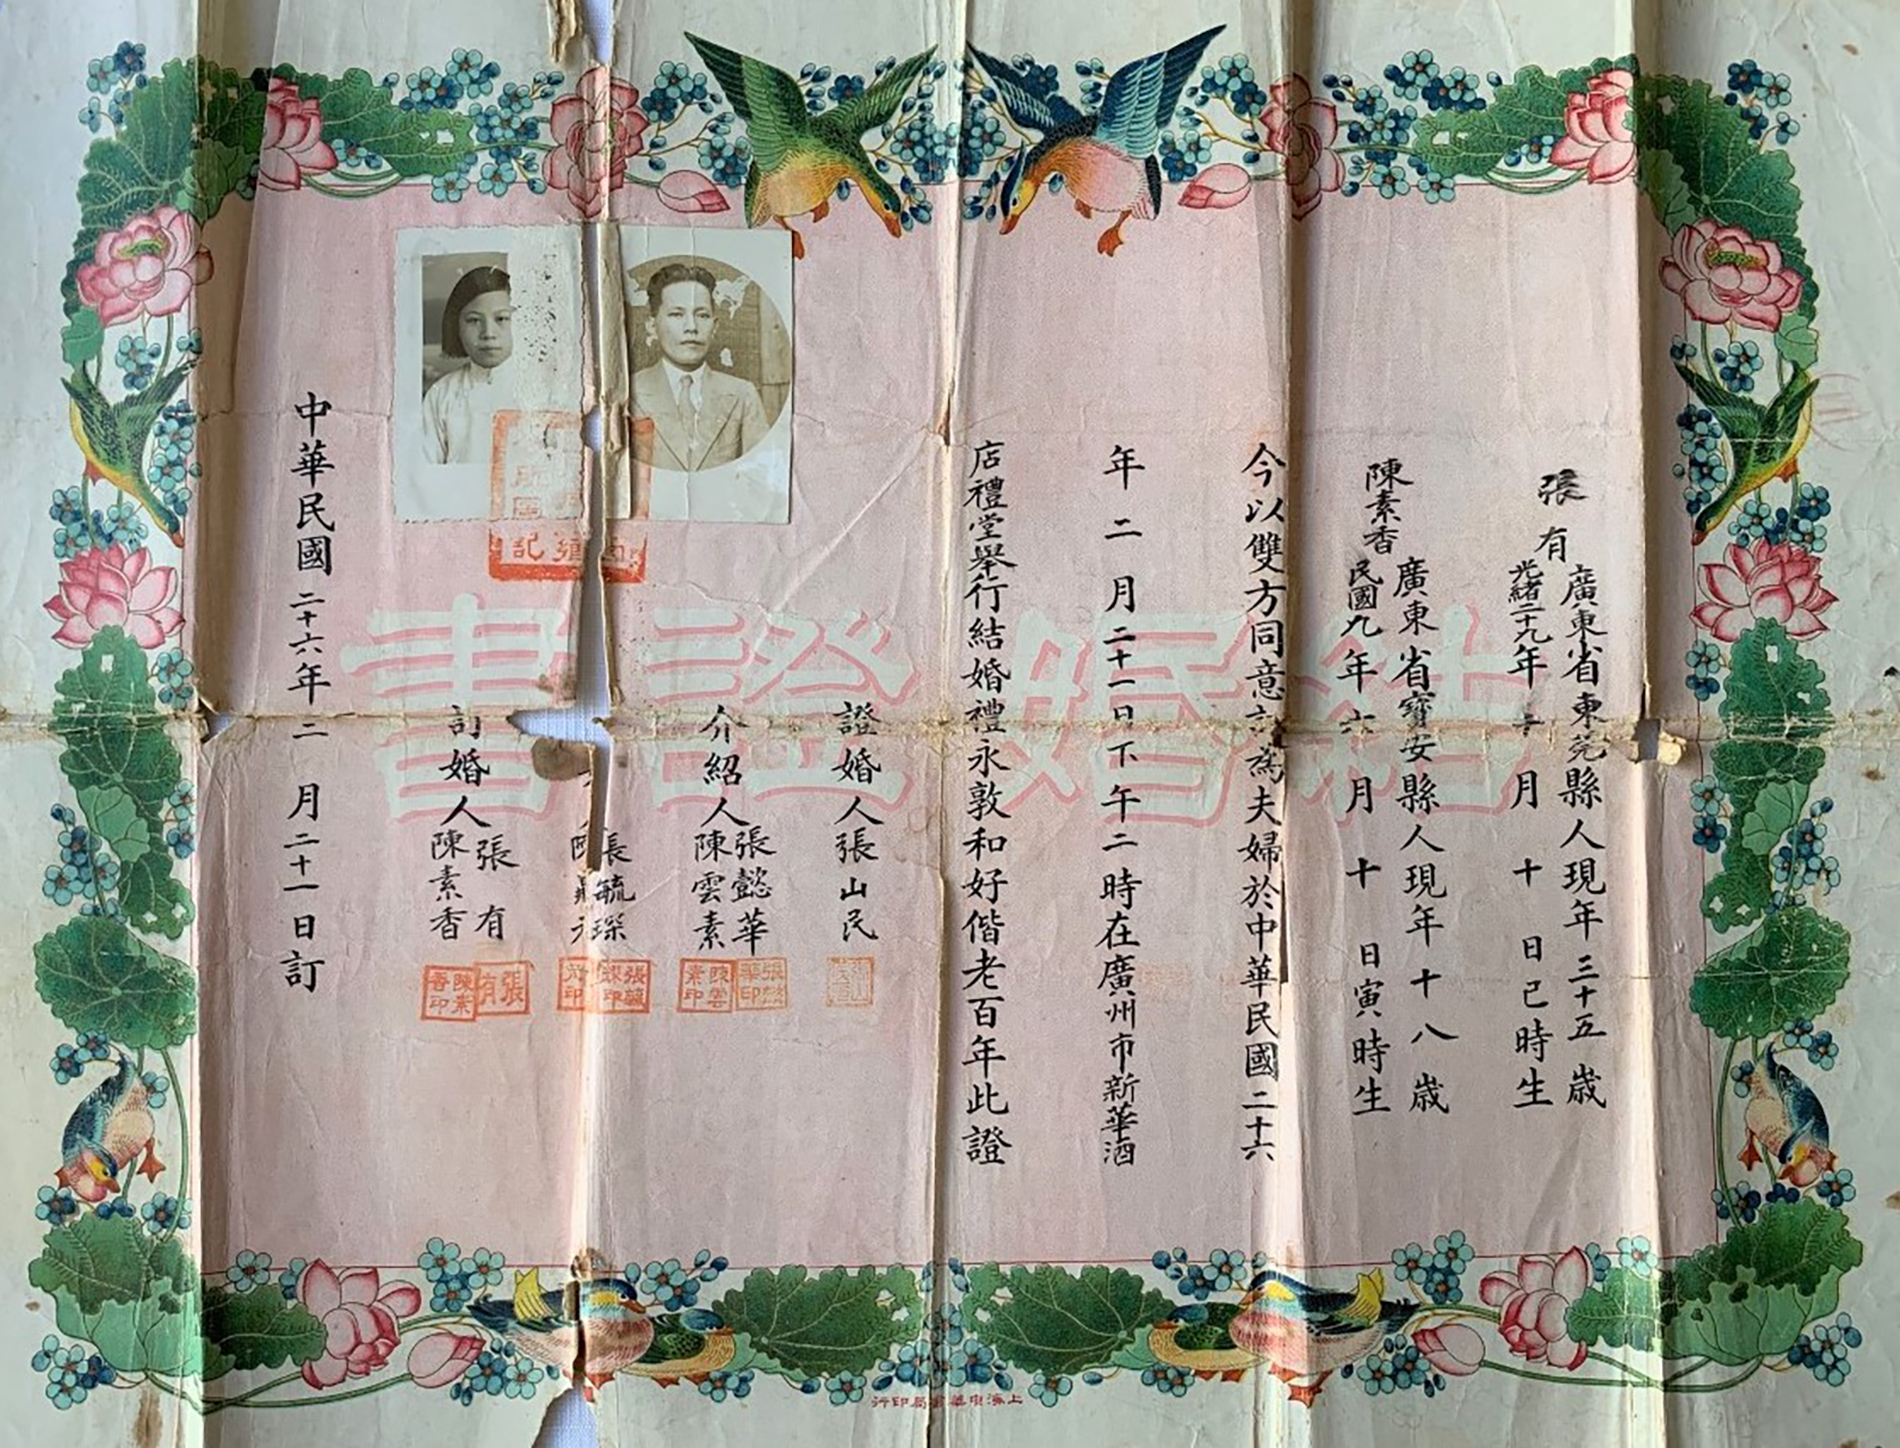 結婚證書
張有
廣東省東莞縣人現年三十五歲
光緒二十九年十月十日巳時生
陳素香
廣東省寶安縣人現年十八歲
民國九年六月十日寅時生
今以雙方同意 為夫婦於中華民國二十六
年二月二十一日下午二時在廣州市新華酒
店禮堂舉行結婚禮永敦和好偕老百年此證
證婚人張山民
介紹人
張懿華
陳雲素
張毓琛
訂婚人
張有
陳素香
中華民國二十六年二月二十一日訂
張懿華印
陳雲素印
張毓琛印
張有
陳素香印